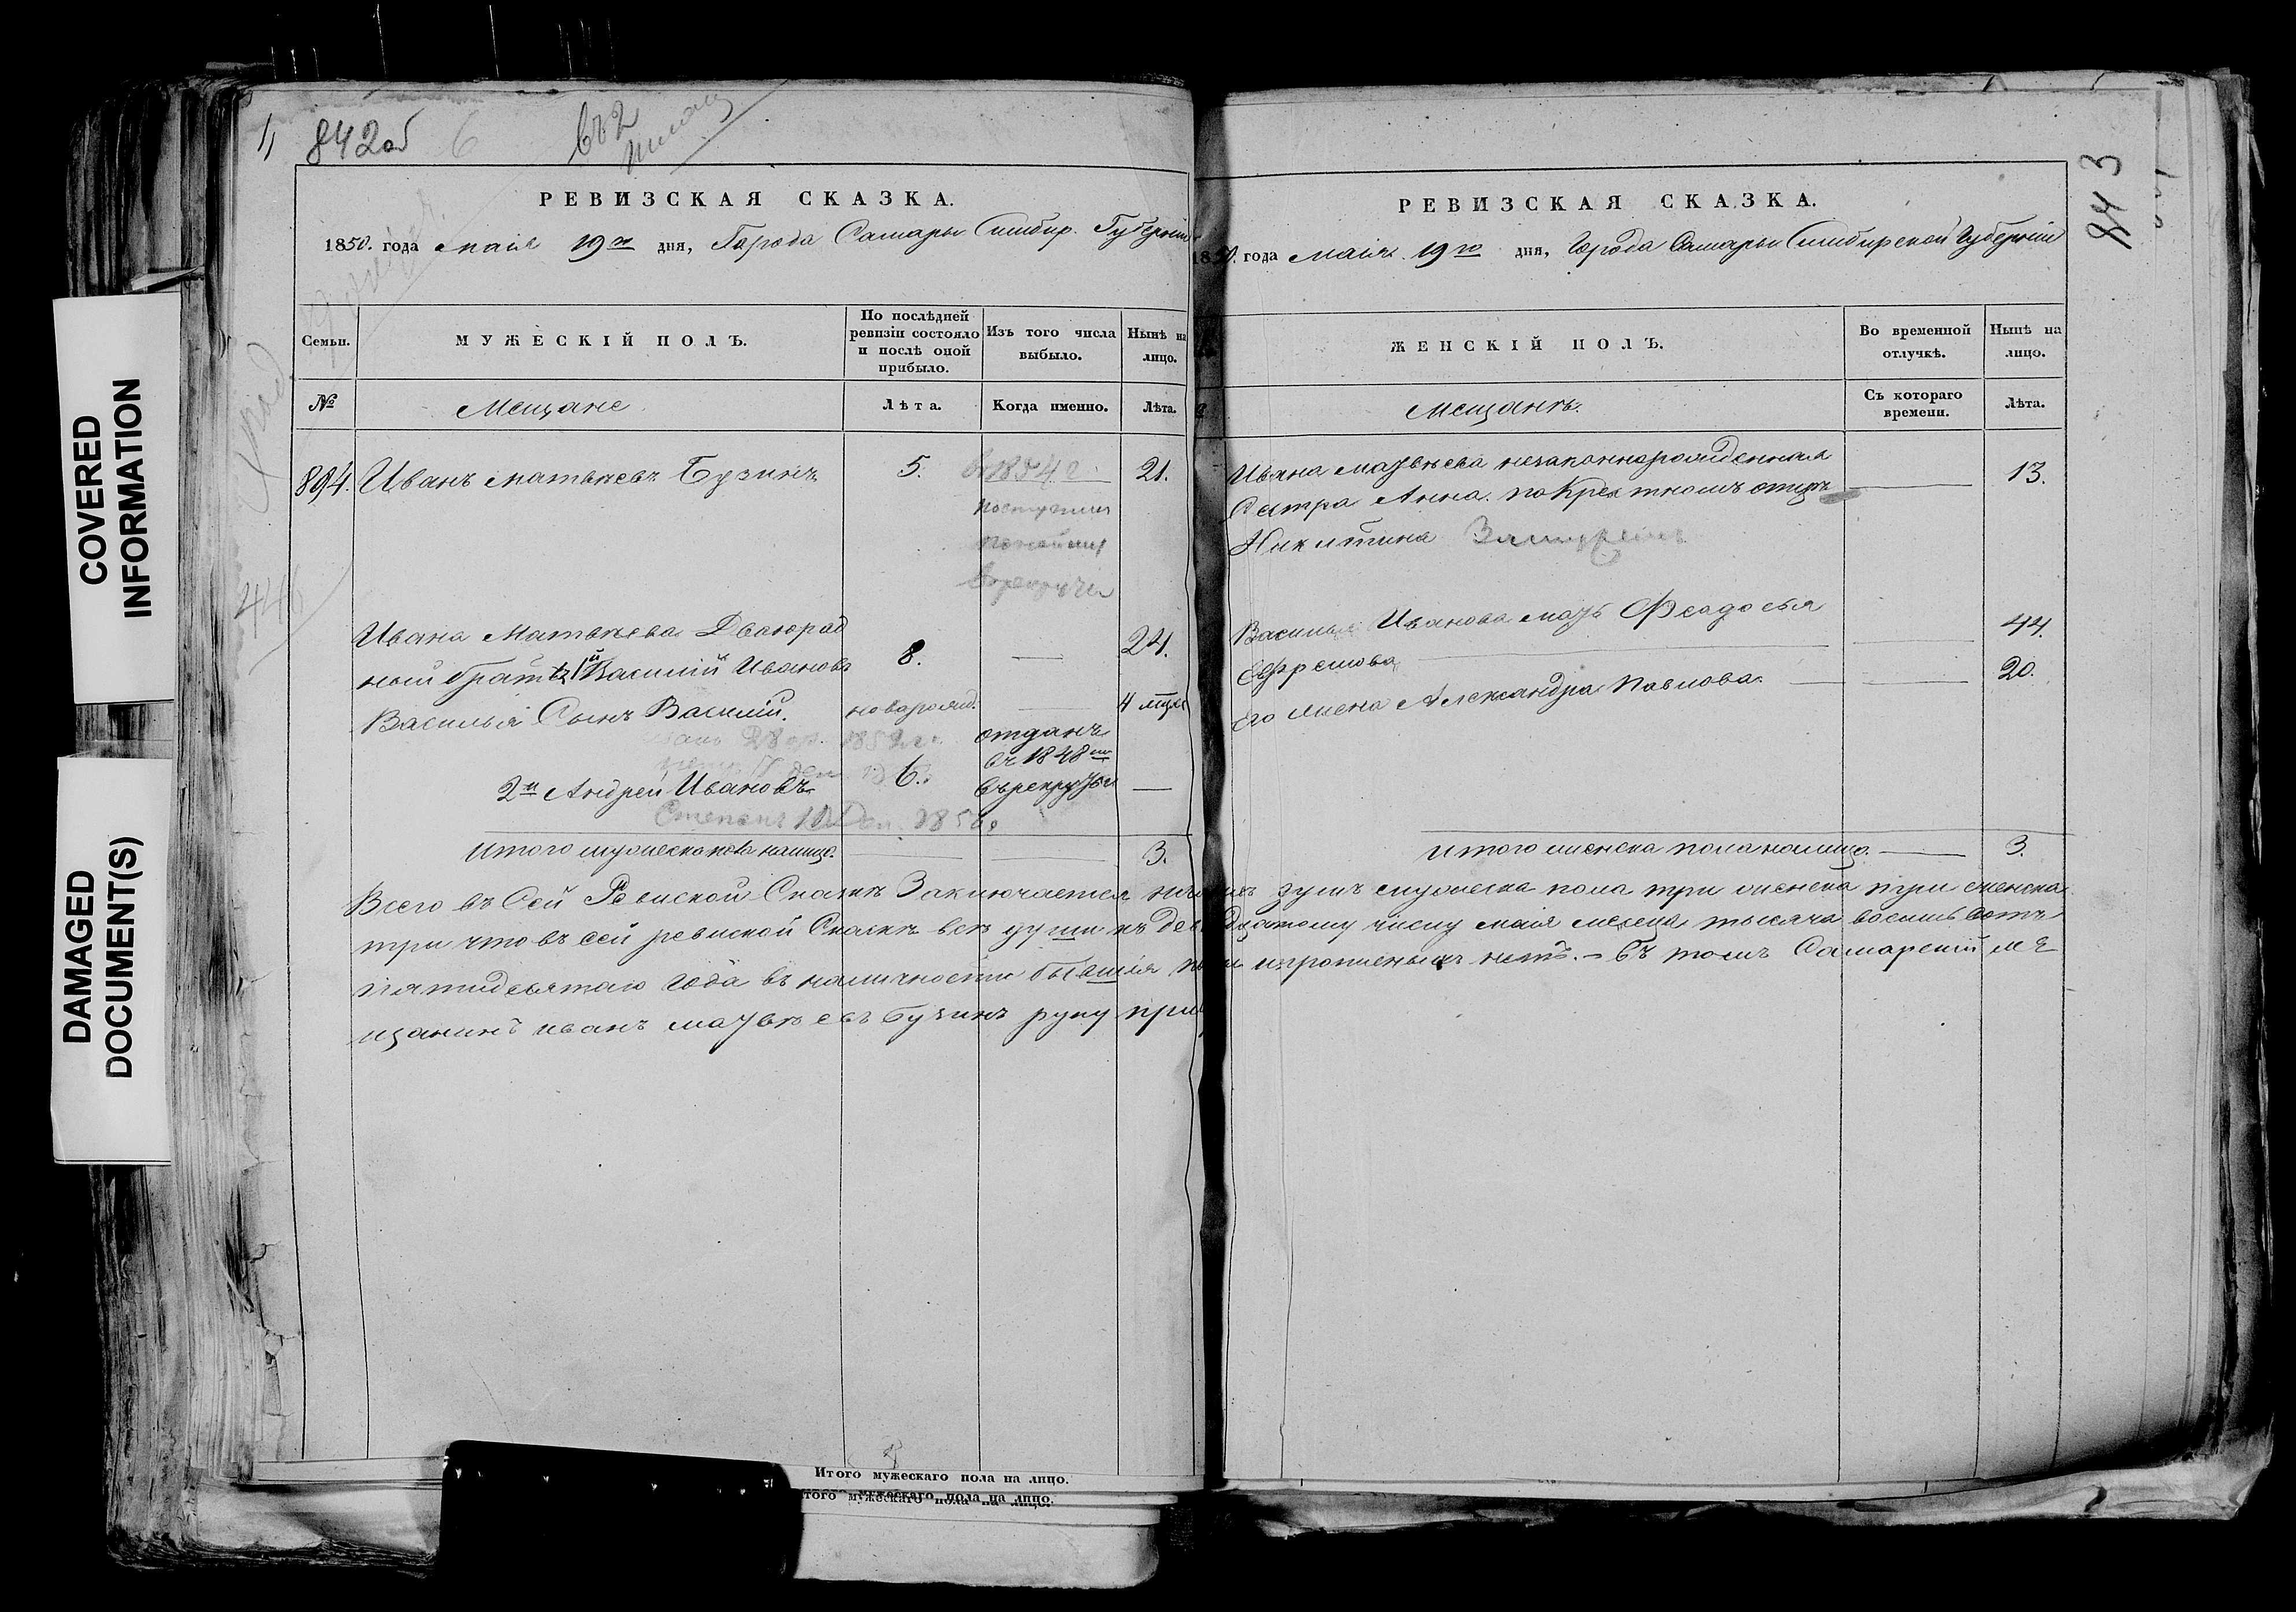 COVERED
INFORMATION
DAMAGED
DOCUMENT(S)
842об 6
РЕВИЗСКАЯ СКАЗКА.
1850. года маія 19го дня, Города Самары Симбир. Губерніи
Семьи.
МУЖЕСКІЙ ПОЛЪ.
По послѣдней
ревизіи состояло
и послѣ оной
прибыло.
Изъ того числа
выбыло.
Нынѣ на
лицо.
№
Мещане
Лѣта.
Когда именно.
Лѣта.
894. Иванъ Матвѣевъ Бузинъ 5. 21.
поступил
Ивана Матвѣева Двоюрад
ный братъ Василий Ивановъ 8. — 24.
Василья Сынъ Василий. новарожд. — 4 мцы
отданъ
въ 1848м
2й Андрей Ивановъ 6. въ рекруты —
Степанъ
Итого мужеска пола налицо. — — 3.
Итого мужескаго пола на лицо.
того мужескаго пола на лицо.
843
РЕВИЗСКАЯ СКАЗКА.
1850. года маія 19го дня, Города Самары Симбирской Губерніи
ЖЕНСКІЙ ПОЛЪ.
Во временной
отлучкѣ.
Нынѣ на
лицо.
Мещанкъ.
Съ котораго
времени.
Лѣта.
Ивана матвѣева незаконнорожденная
Сестра Анна. по Крестномъ отцѣ — 13.
Никитина
Василья Иванова мать Феадосья
Ефремова — 44.
его жена Александра Павлова. — 20.
Итого женска пола налицо. — 3.
Всего въ Сей Ревиской Сказкѣ Заключается душъ мужеска пола три женска три женска
три что въ сей ревиской Сказкѣ всѣ души къ числу маія месяца тысяча восимь сотъ
пятидесятаго года въ наличности бывшія и пропиеныхъ нетъ. — въ томъ Самарский ме
щанинъ иванъ матвѣевъ бузинъ руку при